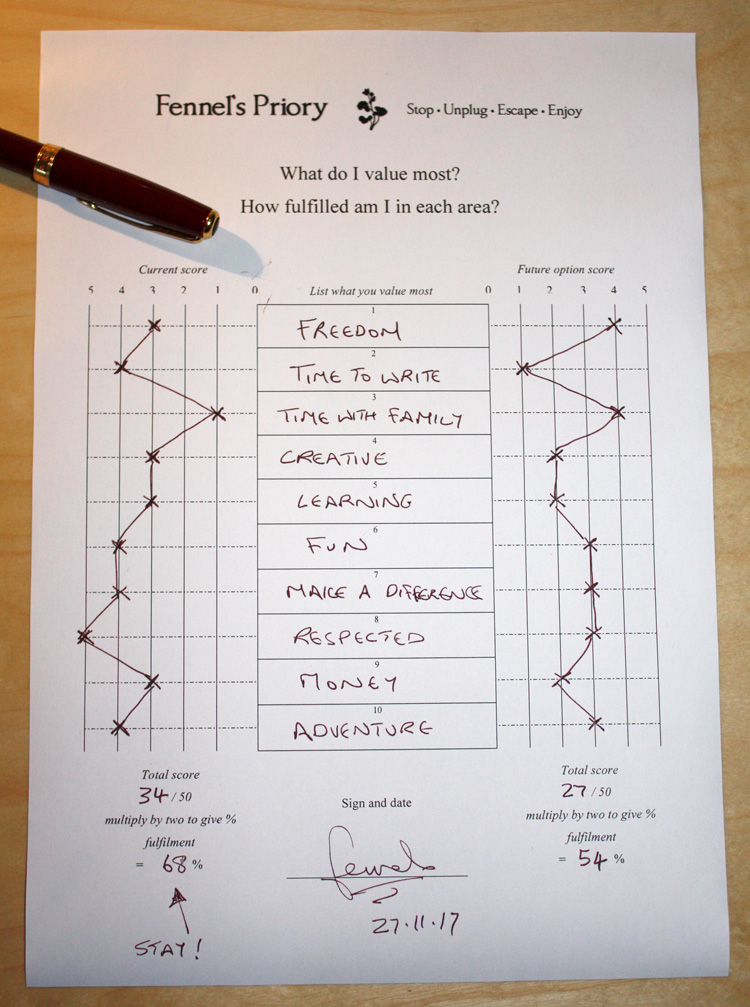 Fennel's Priory
Stop · Unplug · Escape · Enjoy
What do I value most?
How fulfilled am I in each area?
Current score
Future option score
5 4 3 2 1 0
List what you value most
0 1 2 3 4 5
1
FREEDOM
2
TIME TO WRITE
3
TIME WITH FAMILY
4
CREATIVE
5
LEARNING
6
FUN
7
MAKE A DIFFERENCE
8
RESPECTED
9
MONEY
10
ADVENTURE
Total score
34 / 50
multiply by two to give %
fulfilment
= 68 %
STAY!
Sign and date
Fennel
27.11.17
Total score
27 / 50
multiply by two to give %
fulfilment
= 54 %